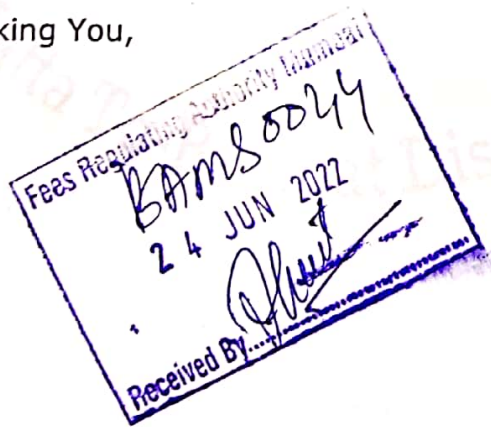 king You,
Feas Regulating Authority Mumbai
BAMS 0044
24 JUN 2022
Received By